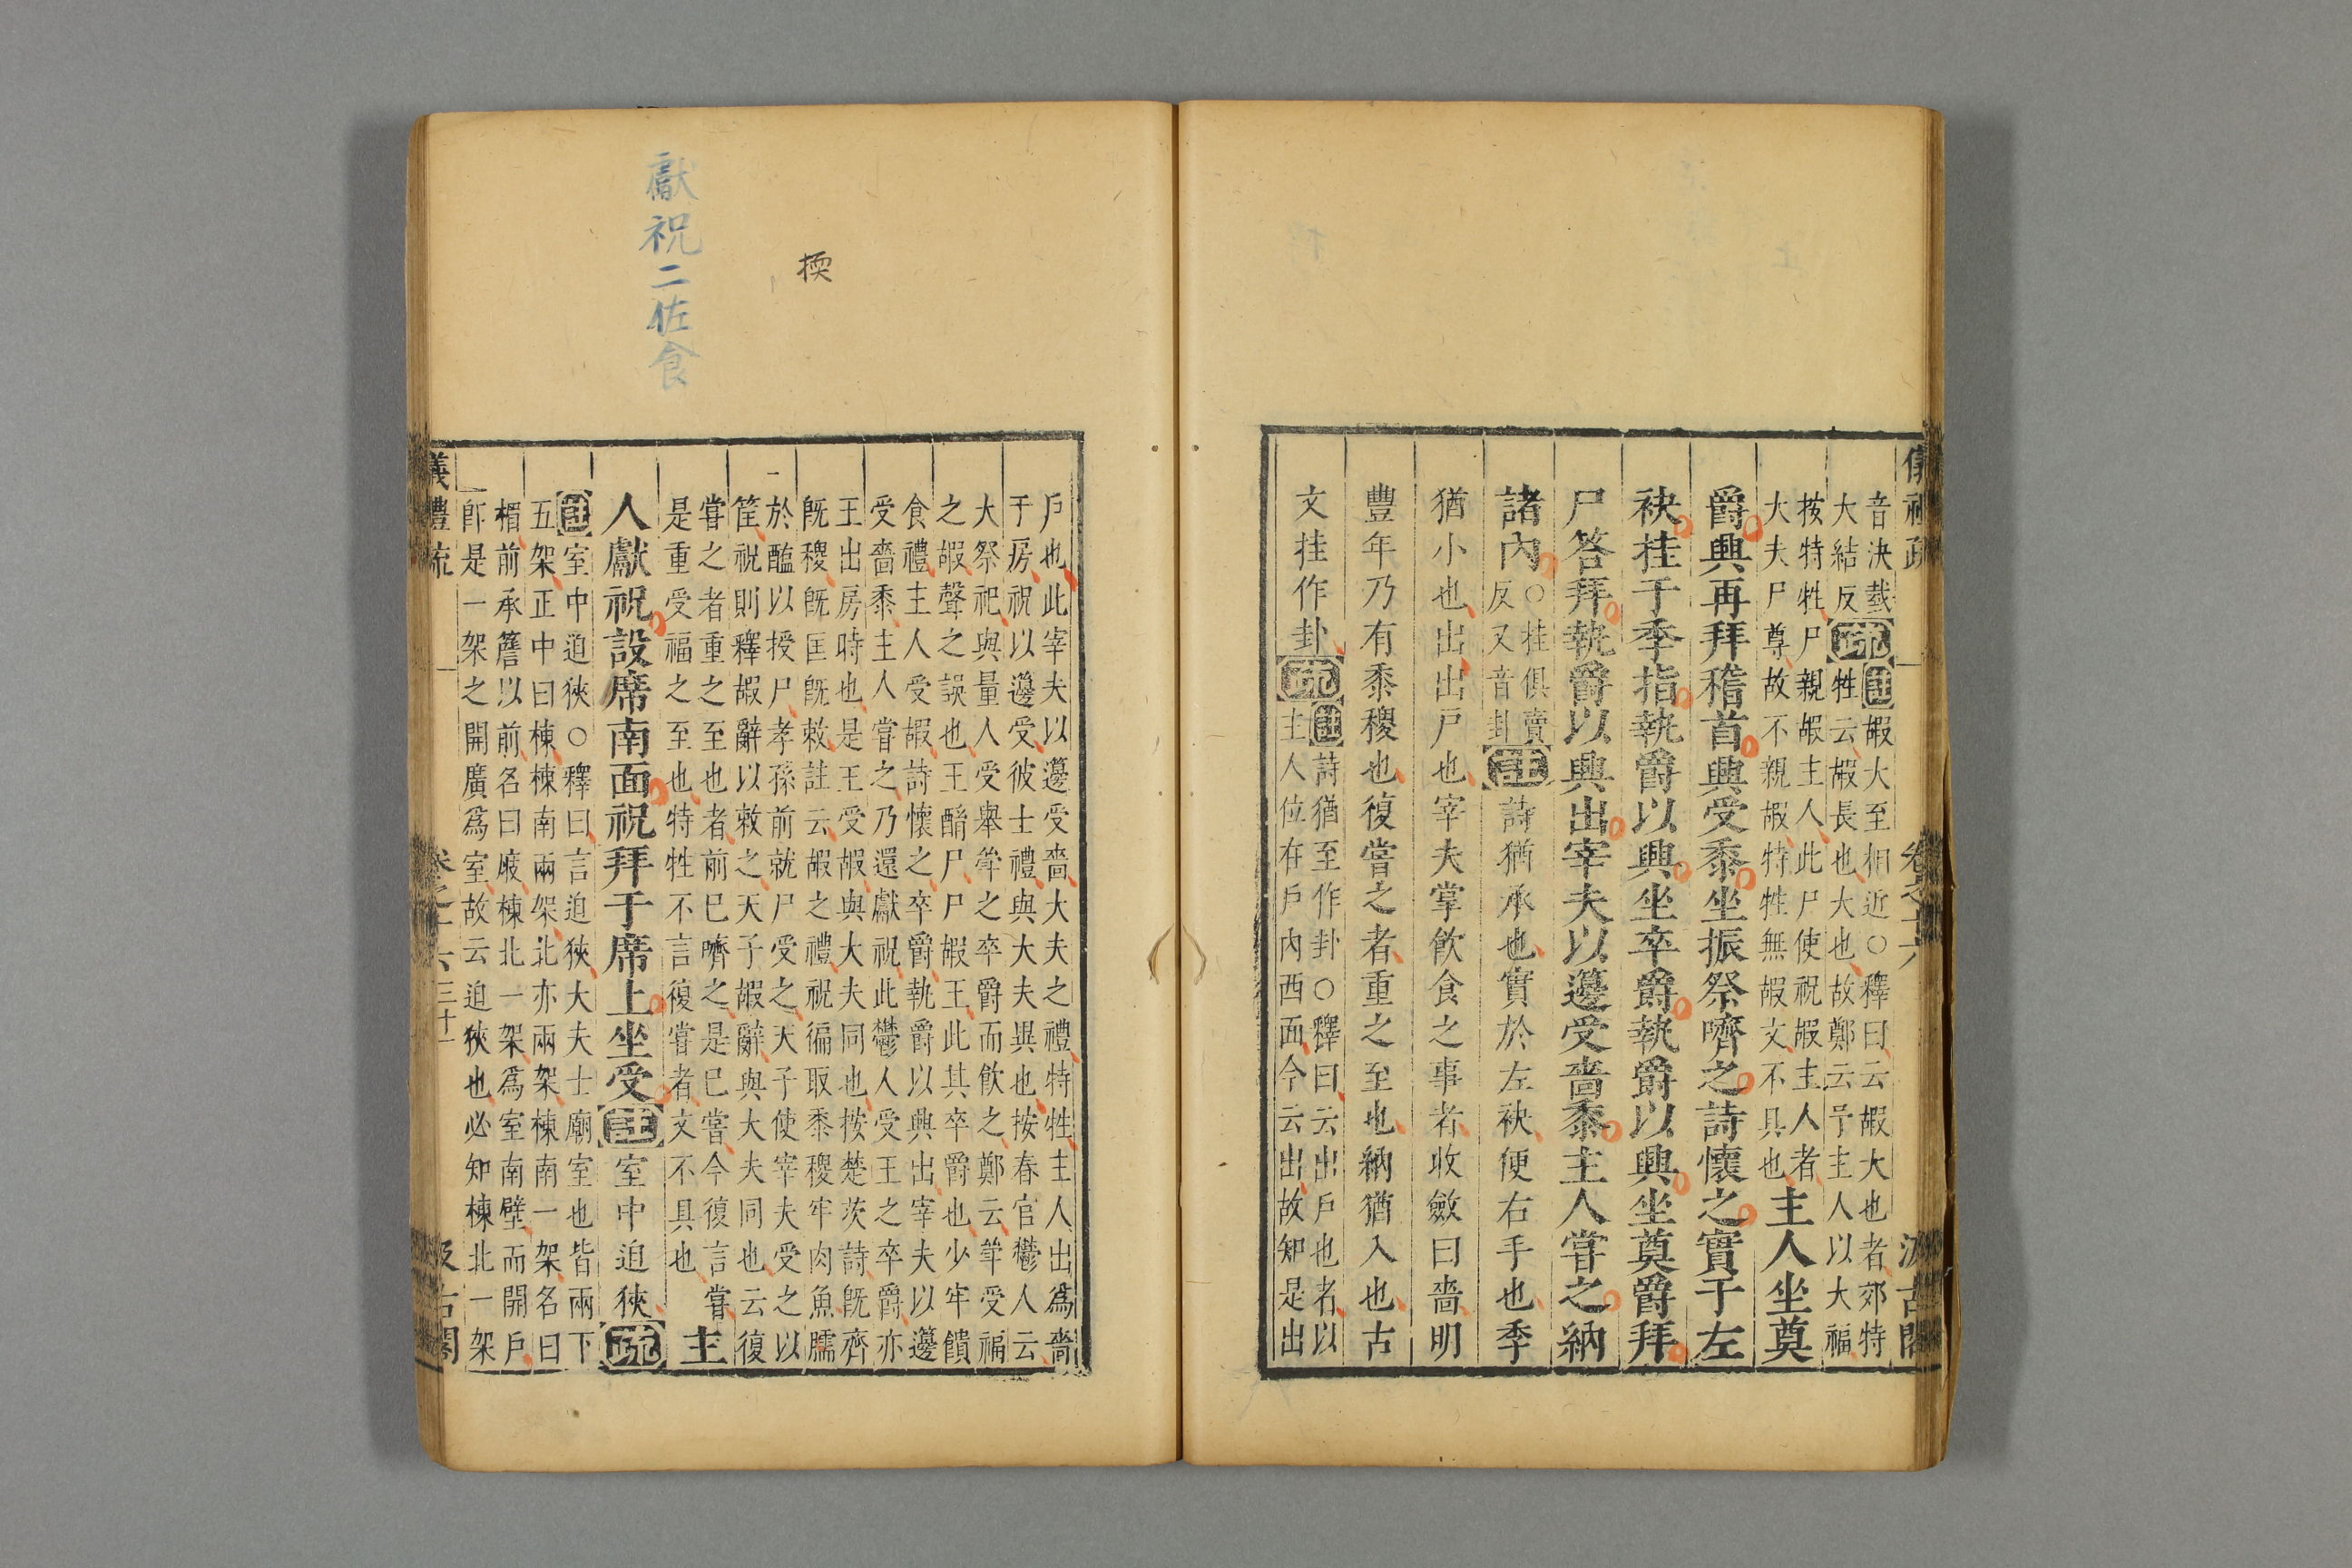 儀禮疏 卷之十六 汲古閣
音決蓺
大結反
疏
注
嘏大至相近○釋曰云嘏大也者郊特
牲云嘏長也大也故鄭云予主人以大福
按特牲尸親嘏主人此尸使祝嘏主人者
大夫尸尊故不親嘏特牲無嘏文不具也
主人坐奠
爵興再拜稽首興受黍坐振祭嚌之詩懷之實于左
袂挂于季指執爵以興坐卒爵執爵以興坐奠爵拜
尸答拜執爵以興出宰夫以籩受嗇黍主人嘗之納
諸內
○挂俱賣
反又音卦
註
詩猶承也實於左袂便右手也季
猶小也出出戶也宰夫掌飲食之事者收斂曰嗇明
豐年乃有黍稷也復嘗之者重之至也納猶入也古
文挂作卦
疏
注
詩猶至作卦○釋曰云出戶也者以
主人位在戶內西面今云出故知是出
揳
獻祝二佐食
戶也此宰夫以籩受嗇大夫之禮特牲主人出寫嗇
于房祝以籩受彼士禮與大夫異也按春官鬱人云
大祭祀與量人受舉斝之卒爵而飲之鄭云斝受福
之嘏聲之誤也王酳尸尸嘏王此其卒爵也少牢饋
食禮主人受嘏詩懷之卒爵執爵以興出宰夫以籩
受嗇黍主人嘗之乃還獻祝此鬱人受王之卒爵亦
王出房時也是王受嘏與大夫同也按楚茨詩旣齊
旣稷旣匡旣敕註云嘏之禮祝徧取黍稷牢肉魚臑
於醢以授尸孝孫前就尸受之天子使宰夫受之以
筐祝則釋嘏辭以敕之天子嘏辭與大夫同也云復
嘗之者重之至也者前已嚌之是已嘗今復言嘗
是重受福之至也特牲不言復嘗者文不具也
主
人獻祝設席南面祝拜于席上坐受
註
室中迫狹
疏
注
室中迫狹○釋曰言迫狹大夫士廟室也皆兩下
五架正中曰棟棟南兩架北亦兩架棟南一架名曰
楣前承簷以前名曰庪棟北一架爲室南壁而開戶
卽是一架之開廣爲室故云迫狹也必知棟北一架
儀禮疏 卷之十六 三十一 汲古閣